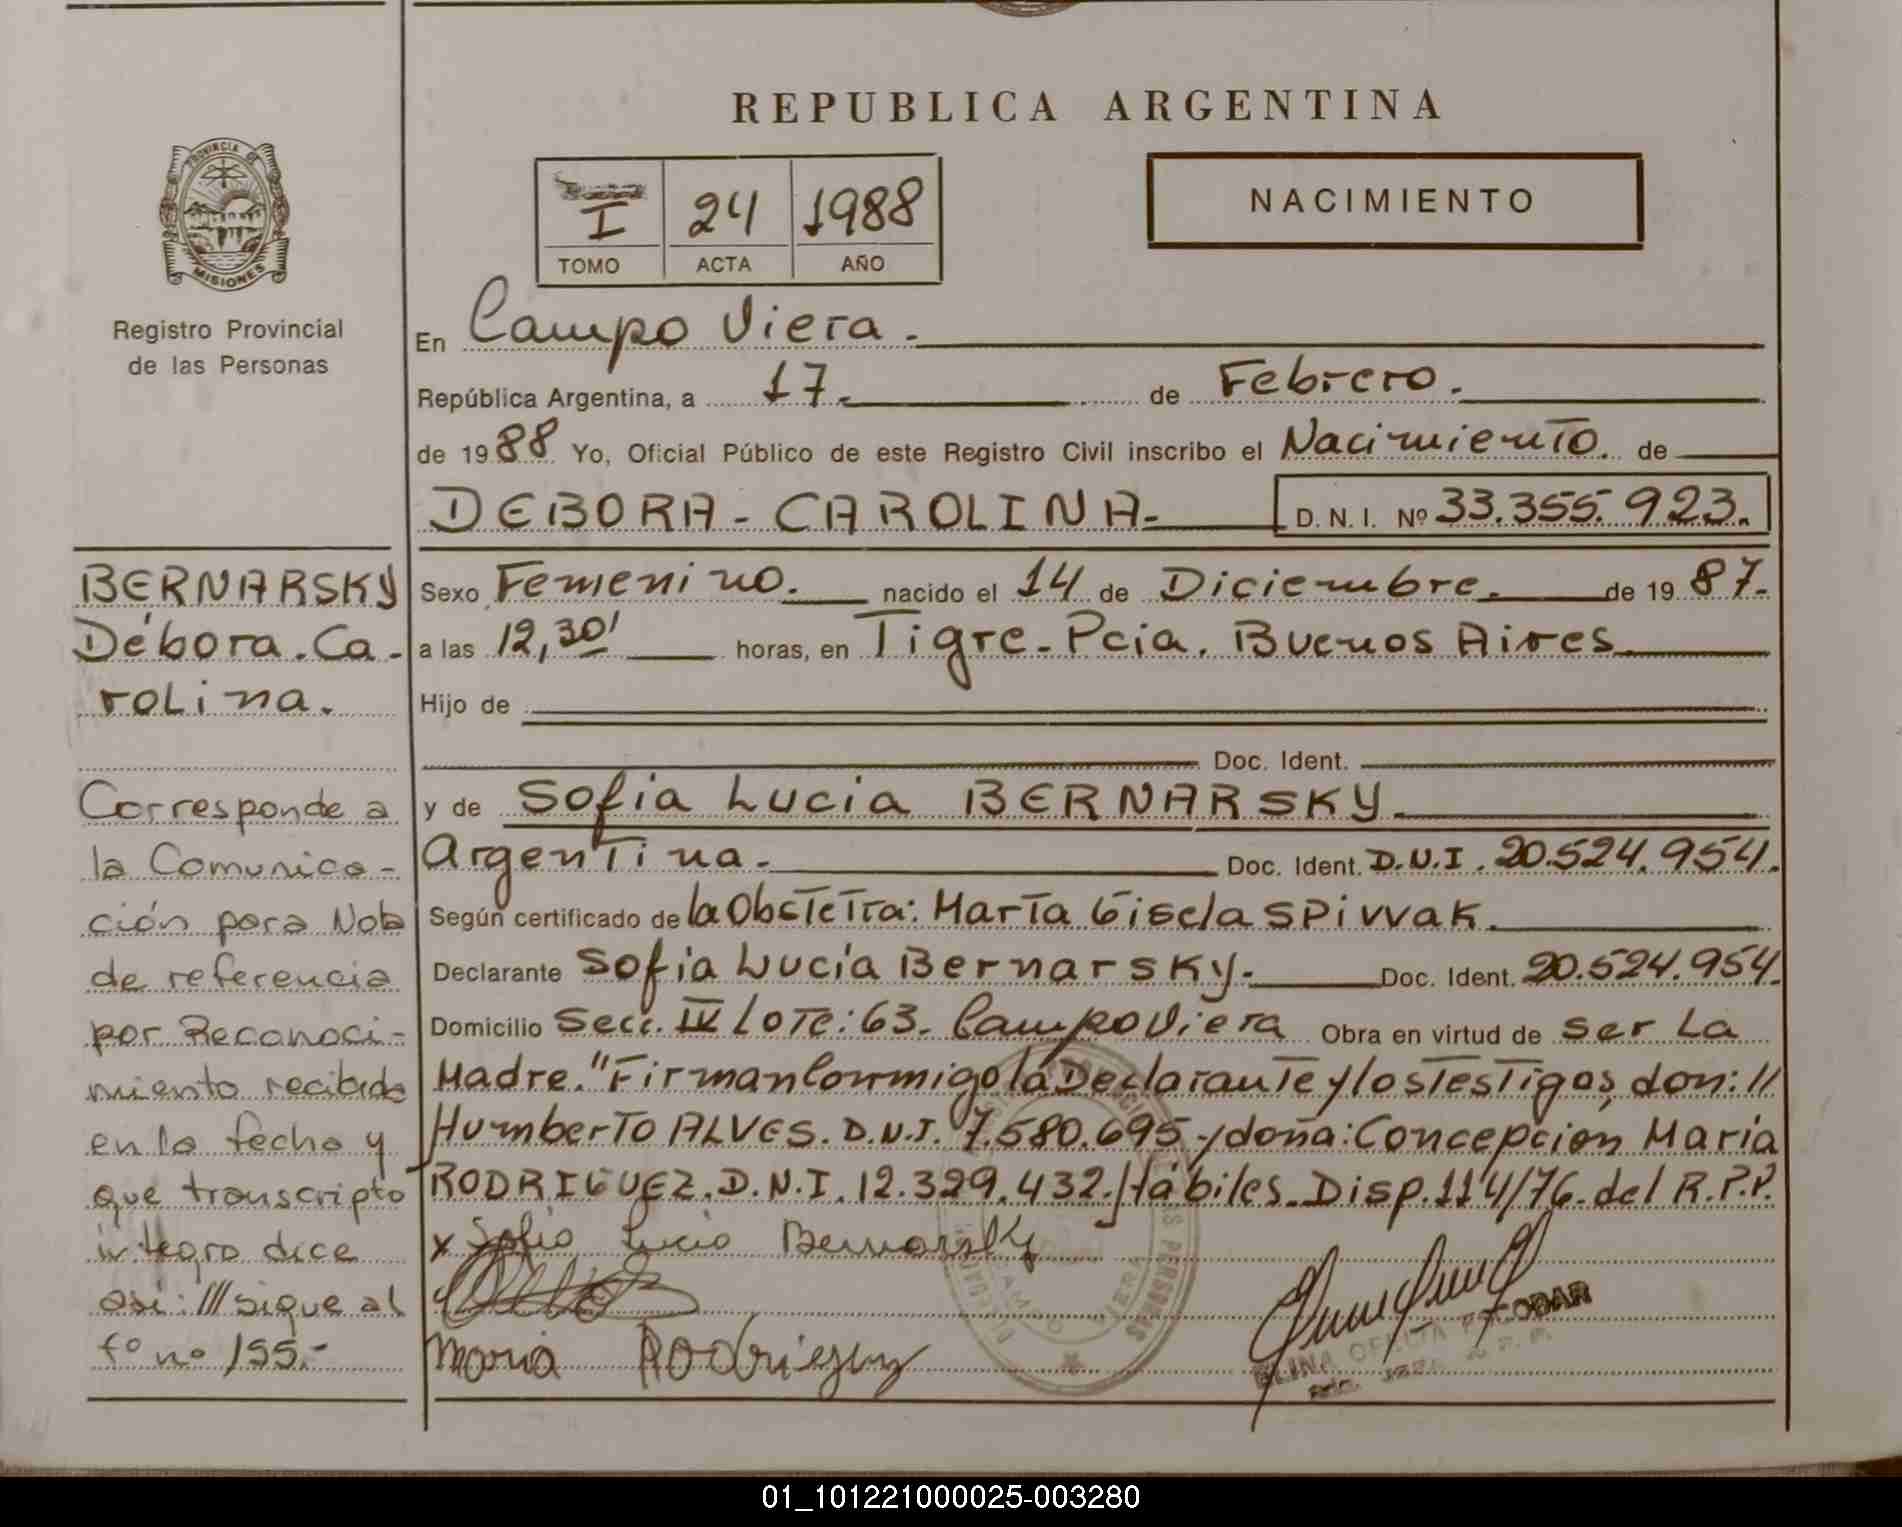 REPUBLICA ARGENTINA
PROVINCIA DE
MISIONES
Registro Provincial
de las Personas
I 24 1988
TOMO ACTA AÑO
NACIMIENTO
En Campo Viera.
República Argentina, a 17. de Febrero.
de 1988 Yo, Oficial Público de este Registro Civil inscribo el Nacimiento. de
DEBORA - CAROLINA- D. N. I. Nº 33.355.923.
Sexo Femenino. nacido el 14 de Diciembre. de 1987.
a las 12,30' horas, en Tigre- Pcia. Buenos Aires
Hijo de
Doc. Ident.
y de Sofia Lucia BERNARSKY
Argentina. Doc. Ident. D.N.I. 20.524.954.
Según certificado de la Obstetra: Marta Gisela SPIVVAK.
Declarante Sofia Lucía Bernarsky. Doc. Ident. 20.524.954.
Domicilio Secc. IV Lote: 63. Campo Viera Obra en virtud de ser La
Madre. "Firman Conmigo la Declarante y los Testigos, don: //
Humberto ALVES. D.N.I. 7.580.695 y doña: Concepcion María
RODRIGUEZ. D.N.I. 12.329.432. Hábiles. Disp. 114/76. del R.P.P.
x Sofia Lucia Bernarsky
Maria Rodriguez
BERNARSKY
Débora. Ca-
rolina.
Corresponde a
la Comunica-
ción para Nota
de referencia
por Reconoci-
miento recibida
en la fecha y
que transcripto
integro dice
asi: /// sigue al
fº nº 155.-
PERSONAS
CAMPO VIERA
OFELIA ESCOBAR
01_101221000025-003280